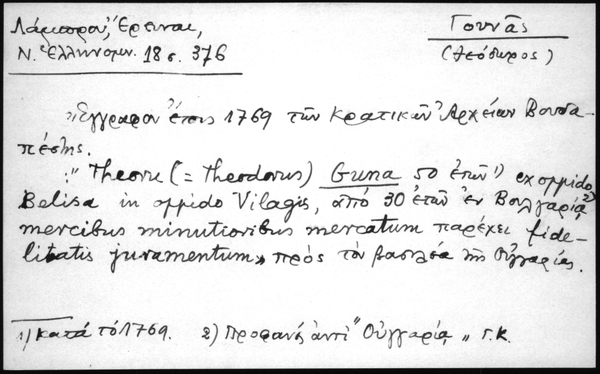 Λάμπρου, Ἔρευναι,
Ν. Ἑλληνομν. 18 σ. 376
Γουνᾶς
(Θεόδωρος)
"Ἔγγραφον ἔτους 1769 τῶν Κρατικῶν Ἀρχείων Βουδα-
πέστης.
"Theore (= Theodorus) Guna 50 ἐτῶν 1) ex oppido
Belisa in oppido Vilagis, ἀπό 30 ἐτῶν ἐν Βουλγαρίᾳ 2)
mercibus minutioribus mercatum παρέχει fide-
litatis juramentum" πρός τόν βασιλέα τῆς Οὑγγαρίας.
1) Κατά τό 1769. 2) Προφανῶς ἀντί "Οὑγγαρίᾳ" Γ.Κ.